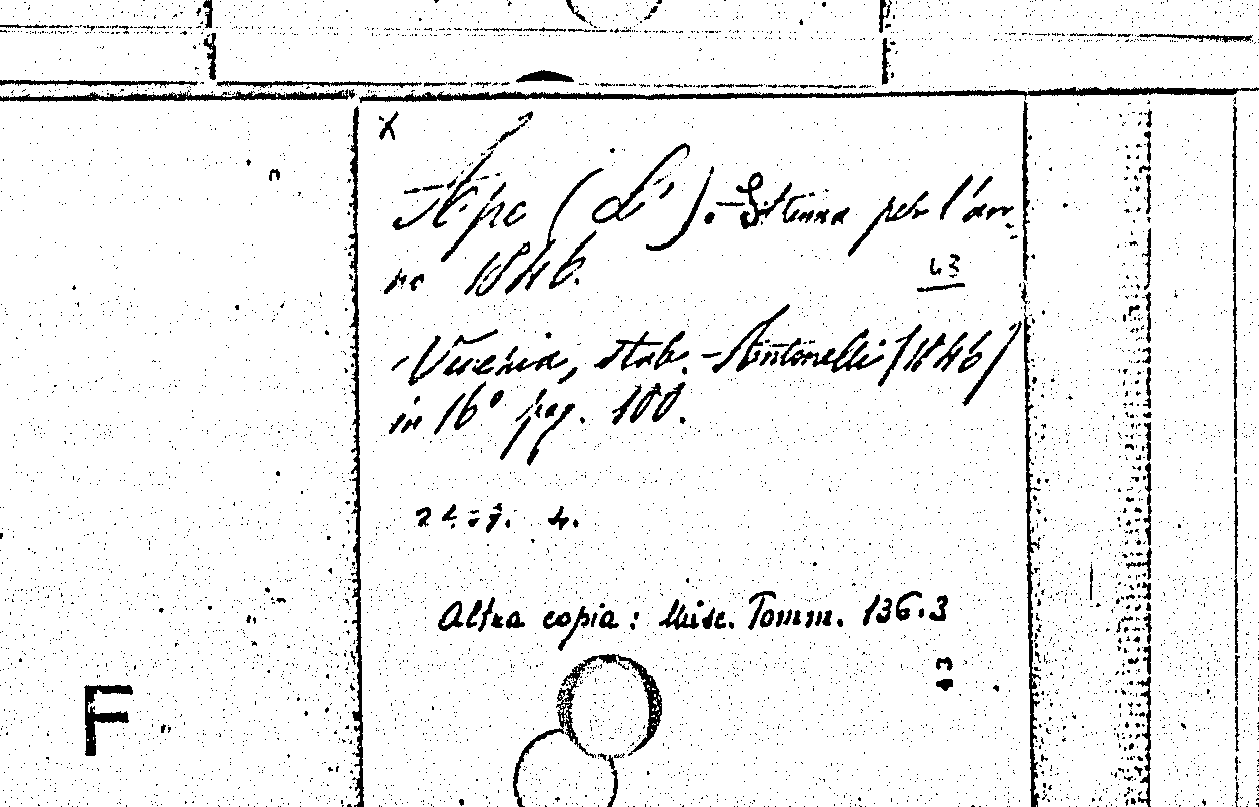 X
Ape (L'). - Strenna per l'an-
no 1846.
43
Venezia, stab. Antonelli (1846)
in 16° pag. 100.
Altra copia: Misc. Tomm. 136.3
43
F